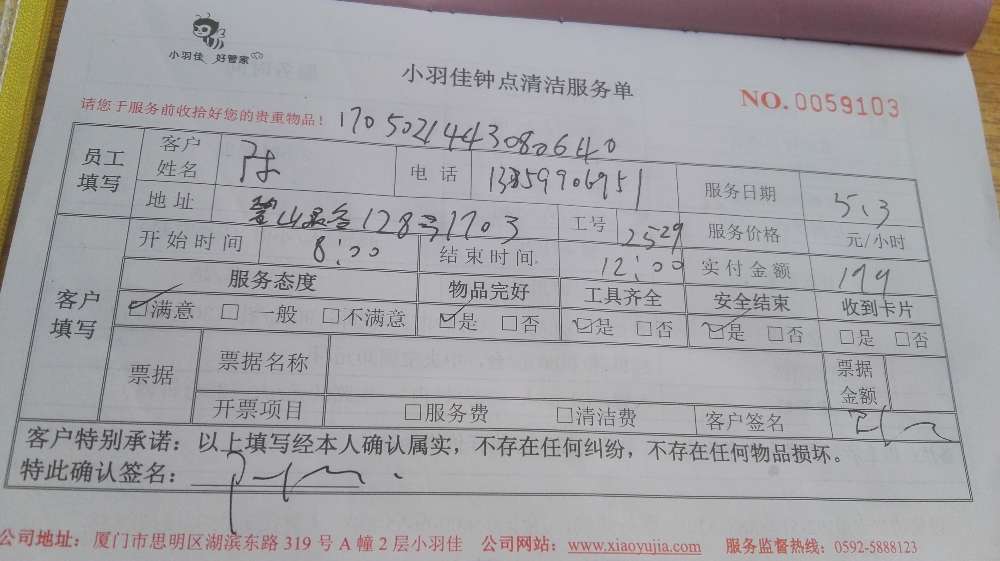 小羽佳 好管家
小羽佳钟点清洁服务单
NO. 0059103
请您于服务前收拾好您的贵重物品! 1705021443080640
员工填写 客户姓名 电话 服务日期 5.3
地址 128号1703 工号 2529 服务价格 元/小时
开始时间 8:00 结束时间 12:00 实付金额
客户填写 服务态度 物品完好 工具齐全 安全结束 收到卡片
☑满意 □一般 □不满意 ☑是 □否 ☑是 □否 ☑是 □否 □是 □否
票据 票据名称 票据金额
开票项目 □服务费 □清洁费 客户签名
客户特别承诺:以上填写经本人确认属实,不存在任何纠纷,不存在任何物品损坏。
特此确认签名:
公司地址:厦门市思明区湖滨东路 319 号 A 幢 2 层小羽佳 公司网站:www.xiaoyujia.com 服务监督热线:0592-5888123